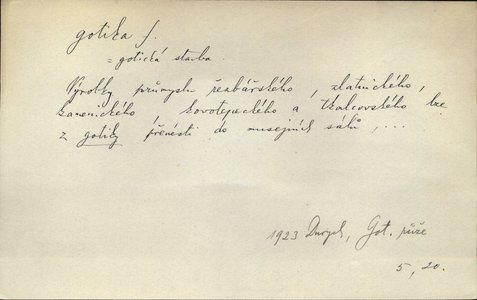 gotika f.
= gotická stavba.
Výrobky průmyslu řezbářského, zlatnického,
kamenického, kovotepeckého a tkalcovského lze
z gotiky přenésti do musejních sálů, ...
1923 Durych, Got. růže
5, 20.